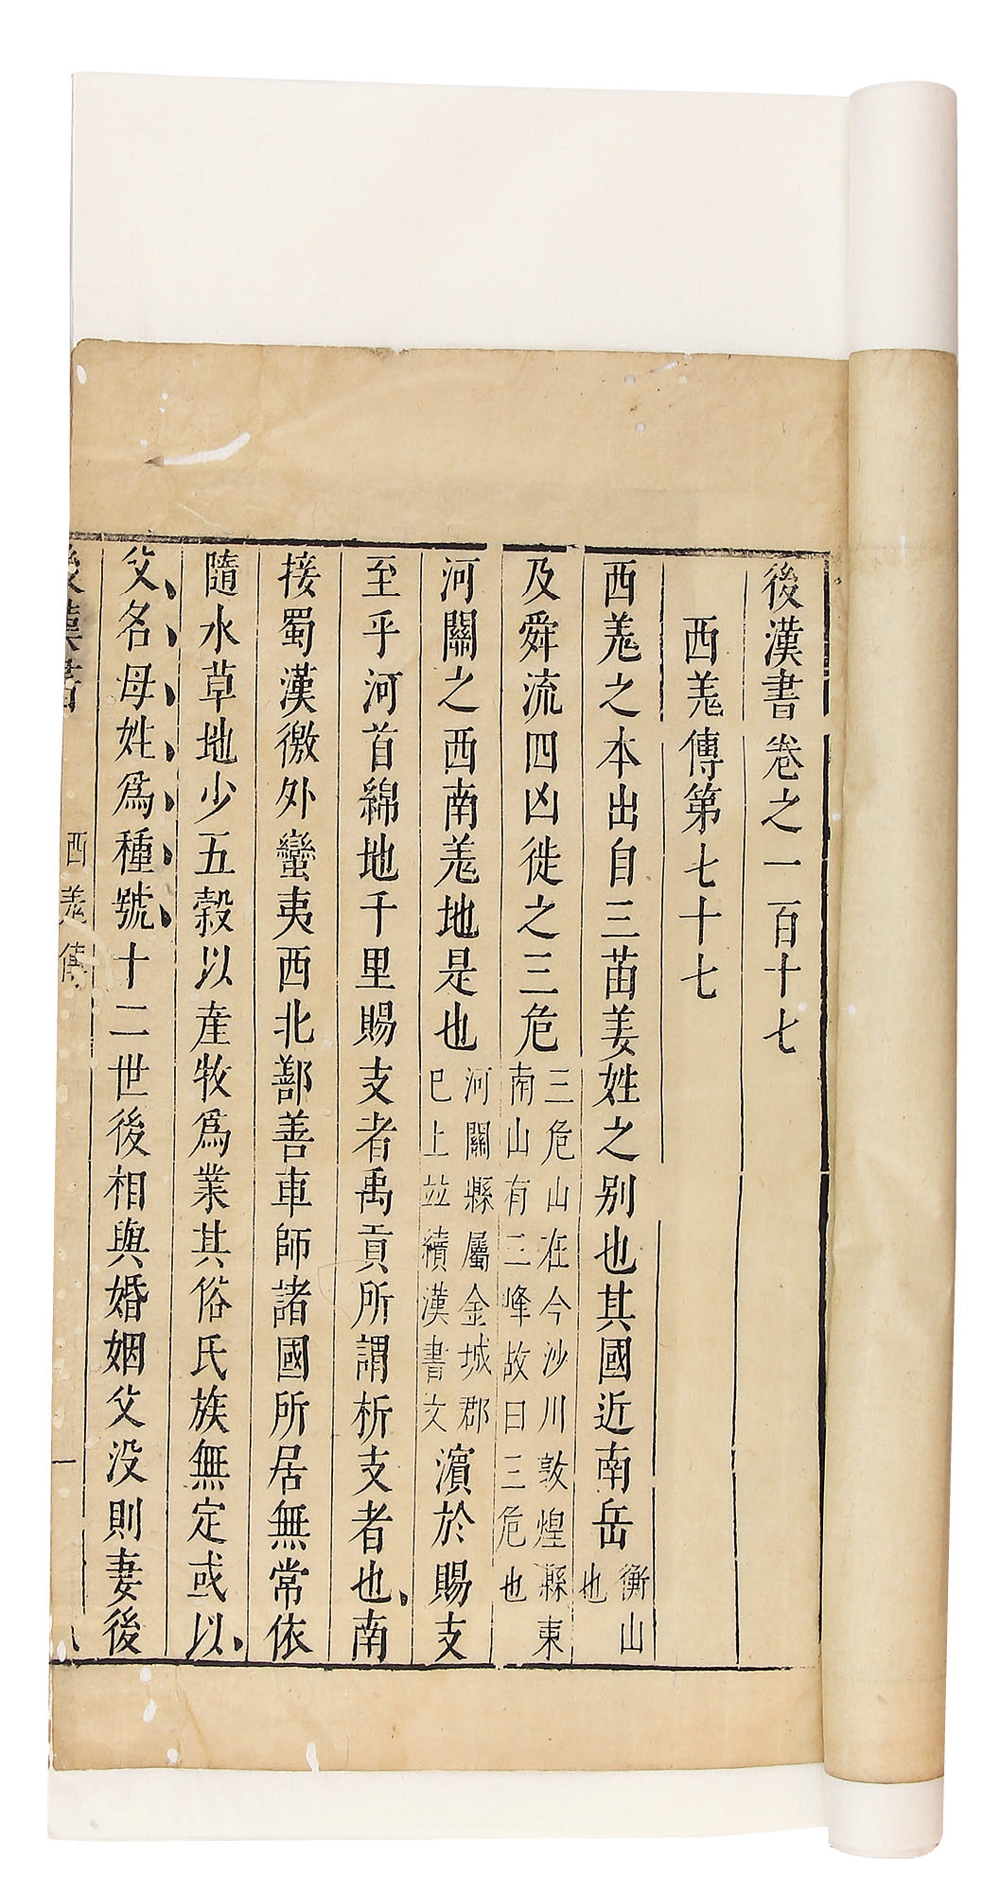 後漢書卷之一百十七
西羗傳第七十七
西羗之本出自三苗姜姓之别也其國近南岳衡山也
及舜流四凶徙之三危三危山在今沙川敦煌縣東南山有三峰故曰三危也
河關之西南羗地是也河關縣屬金城郡巳上並續漢書文濵於賜支
至乎河首綿地千里賜支者禹貢所謂析支者也南
接蜀漢徼外蠻夷西北鄯善車師諸國所居無常依
隨水草地少五榖以產牧爲業其俗氏族無定或以
父名母姓爲種號十二世後相與婚姻父没則妻後
後漢書
西羗傳
一